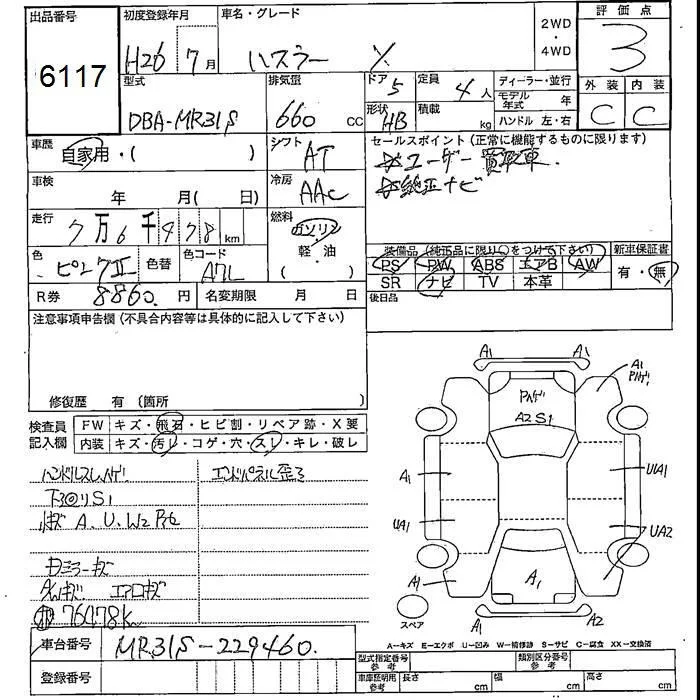 出品番号 初度登録年月 車名・グレード 2WD・4WD 評価点
6117 H26 7月 ハスラー X 3
型式 排気量 ドア 5 定員 4人 ディーラー・並行 外装 内装
DBA-MR31S 660 CC 形状 HB 積載 kg モデル年式 年 C C
ハンドル 左・右
車歴 自家用・( ) シフト AT セールスポイント (正常に機能するものに限ります)
車検 年 月( 日) 冷房 AAC ユーザー買取車.
純正ナビ
走行 7万6千478km 燃料 ガソリン 軽・油 ( )
装備品 (純正品に限り○をつけて下さい) 新車保証書
色 ピンクII 色替 色コード A7L PS PW ABS エアB AW 有・無
SR ナビ TV 本革
R券 8860.円 名変期限 月 日 後日品
注意事項申告欄 (不具合内容等は具体的に記入して下さい)
修復歴 有 (箇所 )
検査員記入欄 FW キズ・飛石・ヒビ割・リペア跡・X要
内装 キズ・汚レ・コゲ・穴・スレ・キレ・破レ
ハンドルスレ
エンドパネル歪ろ
S1
A、U、W2
ミラーキズ
エアロキズ
76478K
車台番号 MR31S-229460.
登録番号
A1 A1
A1
A2 S1
A1 U1A1
UA1 UA2
A1 A1
A1 A2
スペア
A-キズ E-エクボ U-凹み W-補修跡 S-サビ C-腐食 XX-交換済
型式指定番号 参考 類別区分番号 参考
車庫証明用 参考 長さ cm 幅 cm 高さ cm